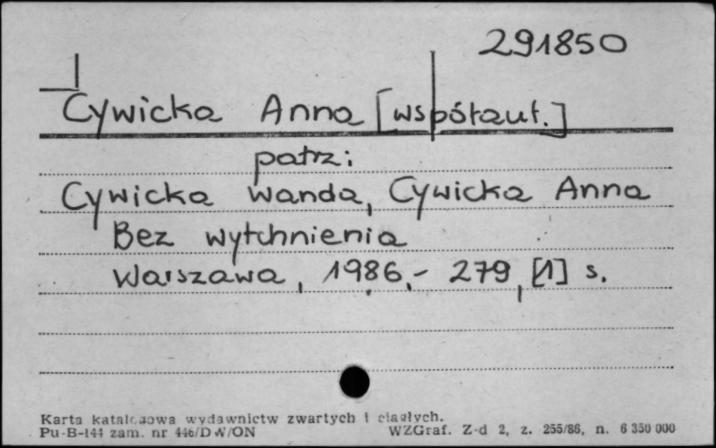 291850
Cywicka Anna [współaut.]
patrz:
Cywicka Wanda, Cywicka Anna
Bez wytchnienia
Warszawa, 1986.- 279, [1] s.
Karta katalogowa wydawnictw zwartych i ciągłych.
Pu-B-144 zam. nr 446/DW/ON WZGraf. Z-d 2, z. 255/86, n. 6 350 000